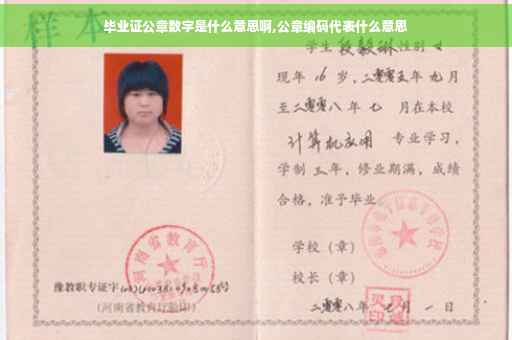 毕业证公章数字是什么意思啊,公章编码代表什么意思
样本
学生段毅琳性别女
现年16岁,二零零五年九月
至二零零八年七月在本校
计算机应用专业学习,
学制三年,修业期满,成绩
合格,准予毕业
学校(章)
校长(章)
二零零八年七月一日
河南省教育厅
豫教职专证字
(河南省教育厅验印)